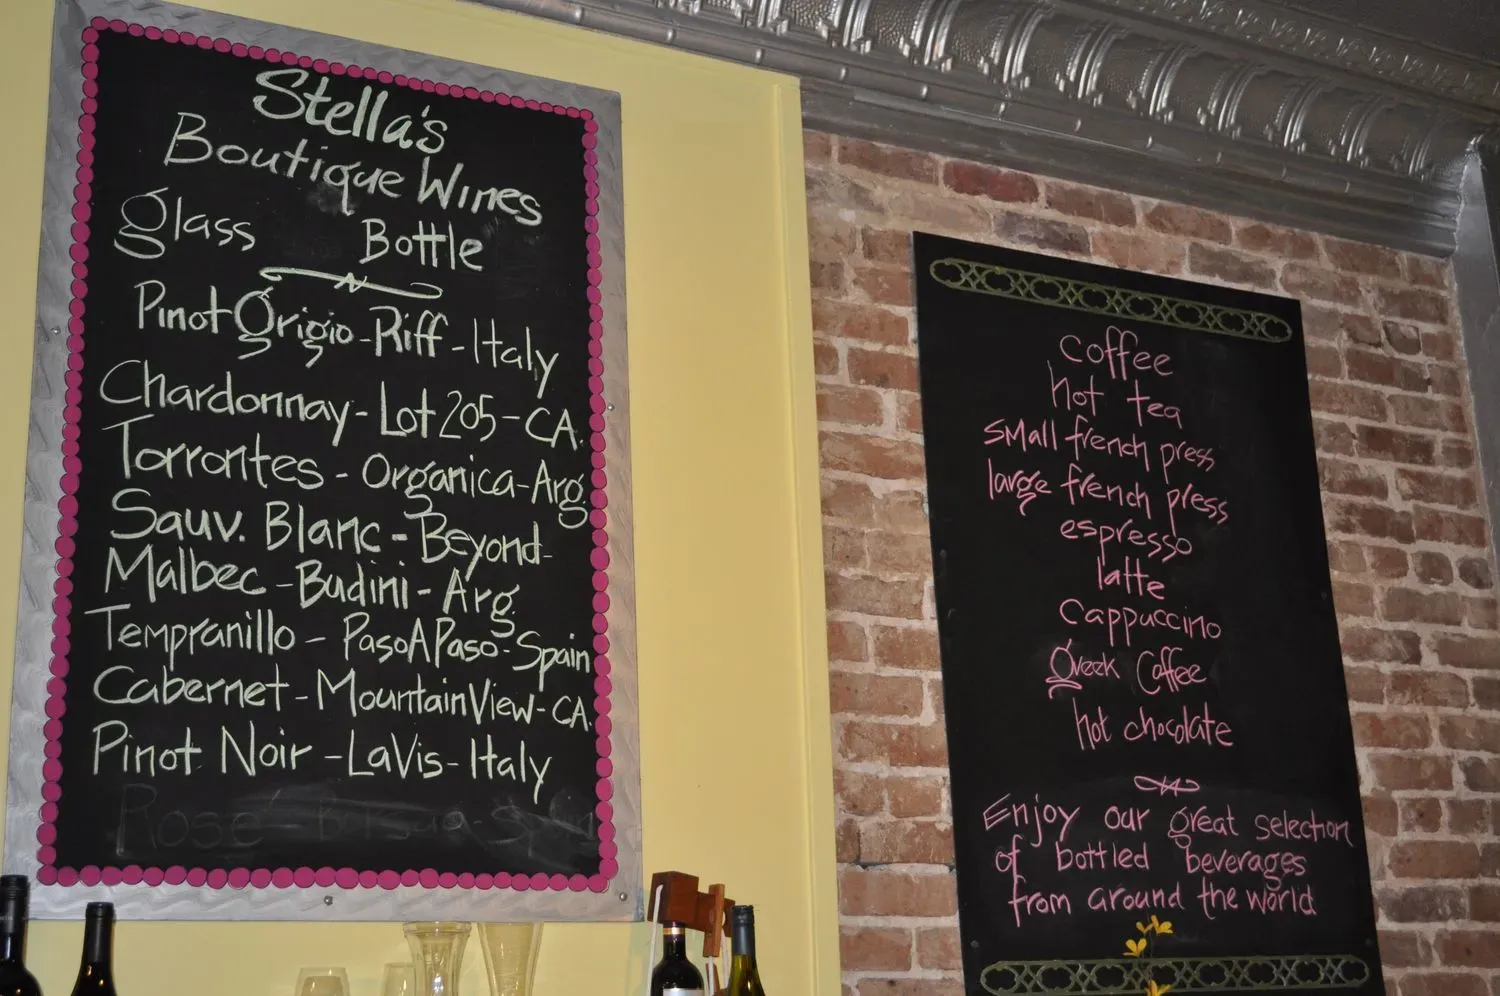 Stella's
Boutique Wines
glass Bottle
Pinot Grigio - Riff - Italy
Chardonnay - Lot 205 - CA.
Torrontes - Organica - Arg.
Sauv. Blanc - Beyond -
Malbec - Budini - Arg.
Tempranillo - Paso A Paso - Spain
Cabernet - Mountain View - CA.
Pinot Noir - LaVis - Italy
Rosé - - Spain
coffee
hot tea
small french press
large french press
espresso
latte
Cappuccino
Greek Coffee
hot chocolate
Enjoy our great selection
of bottled beverages
from around the world